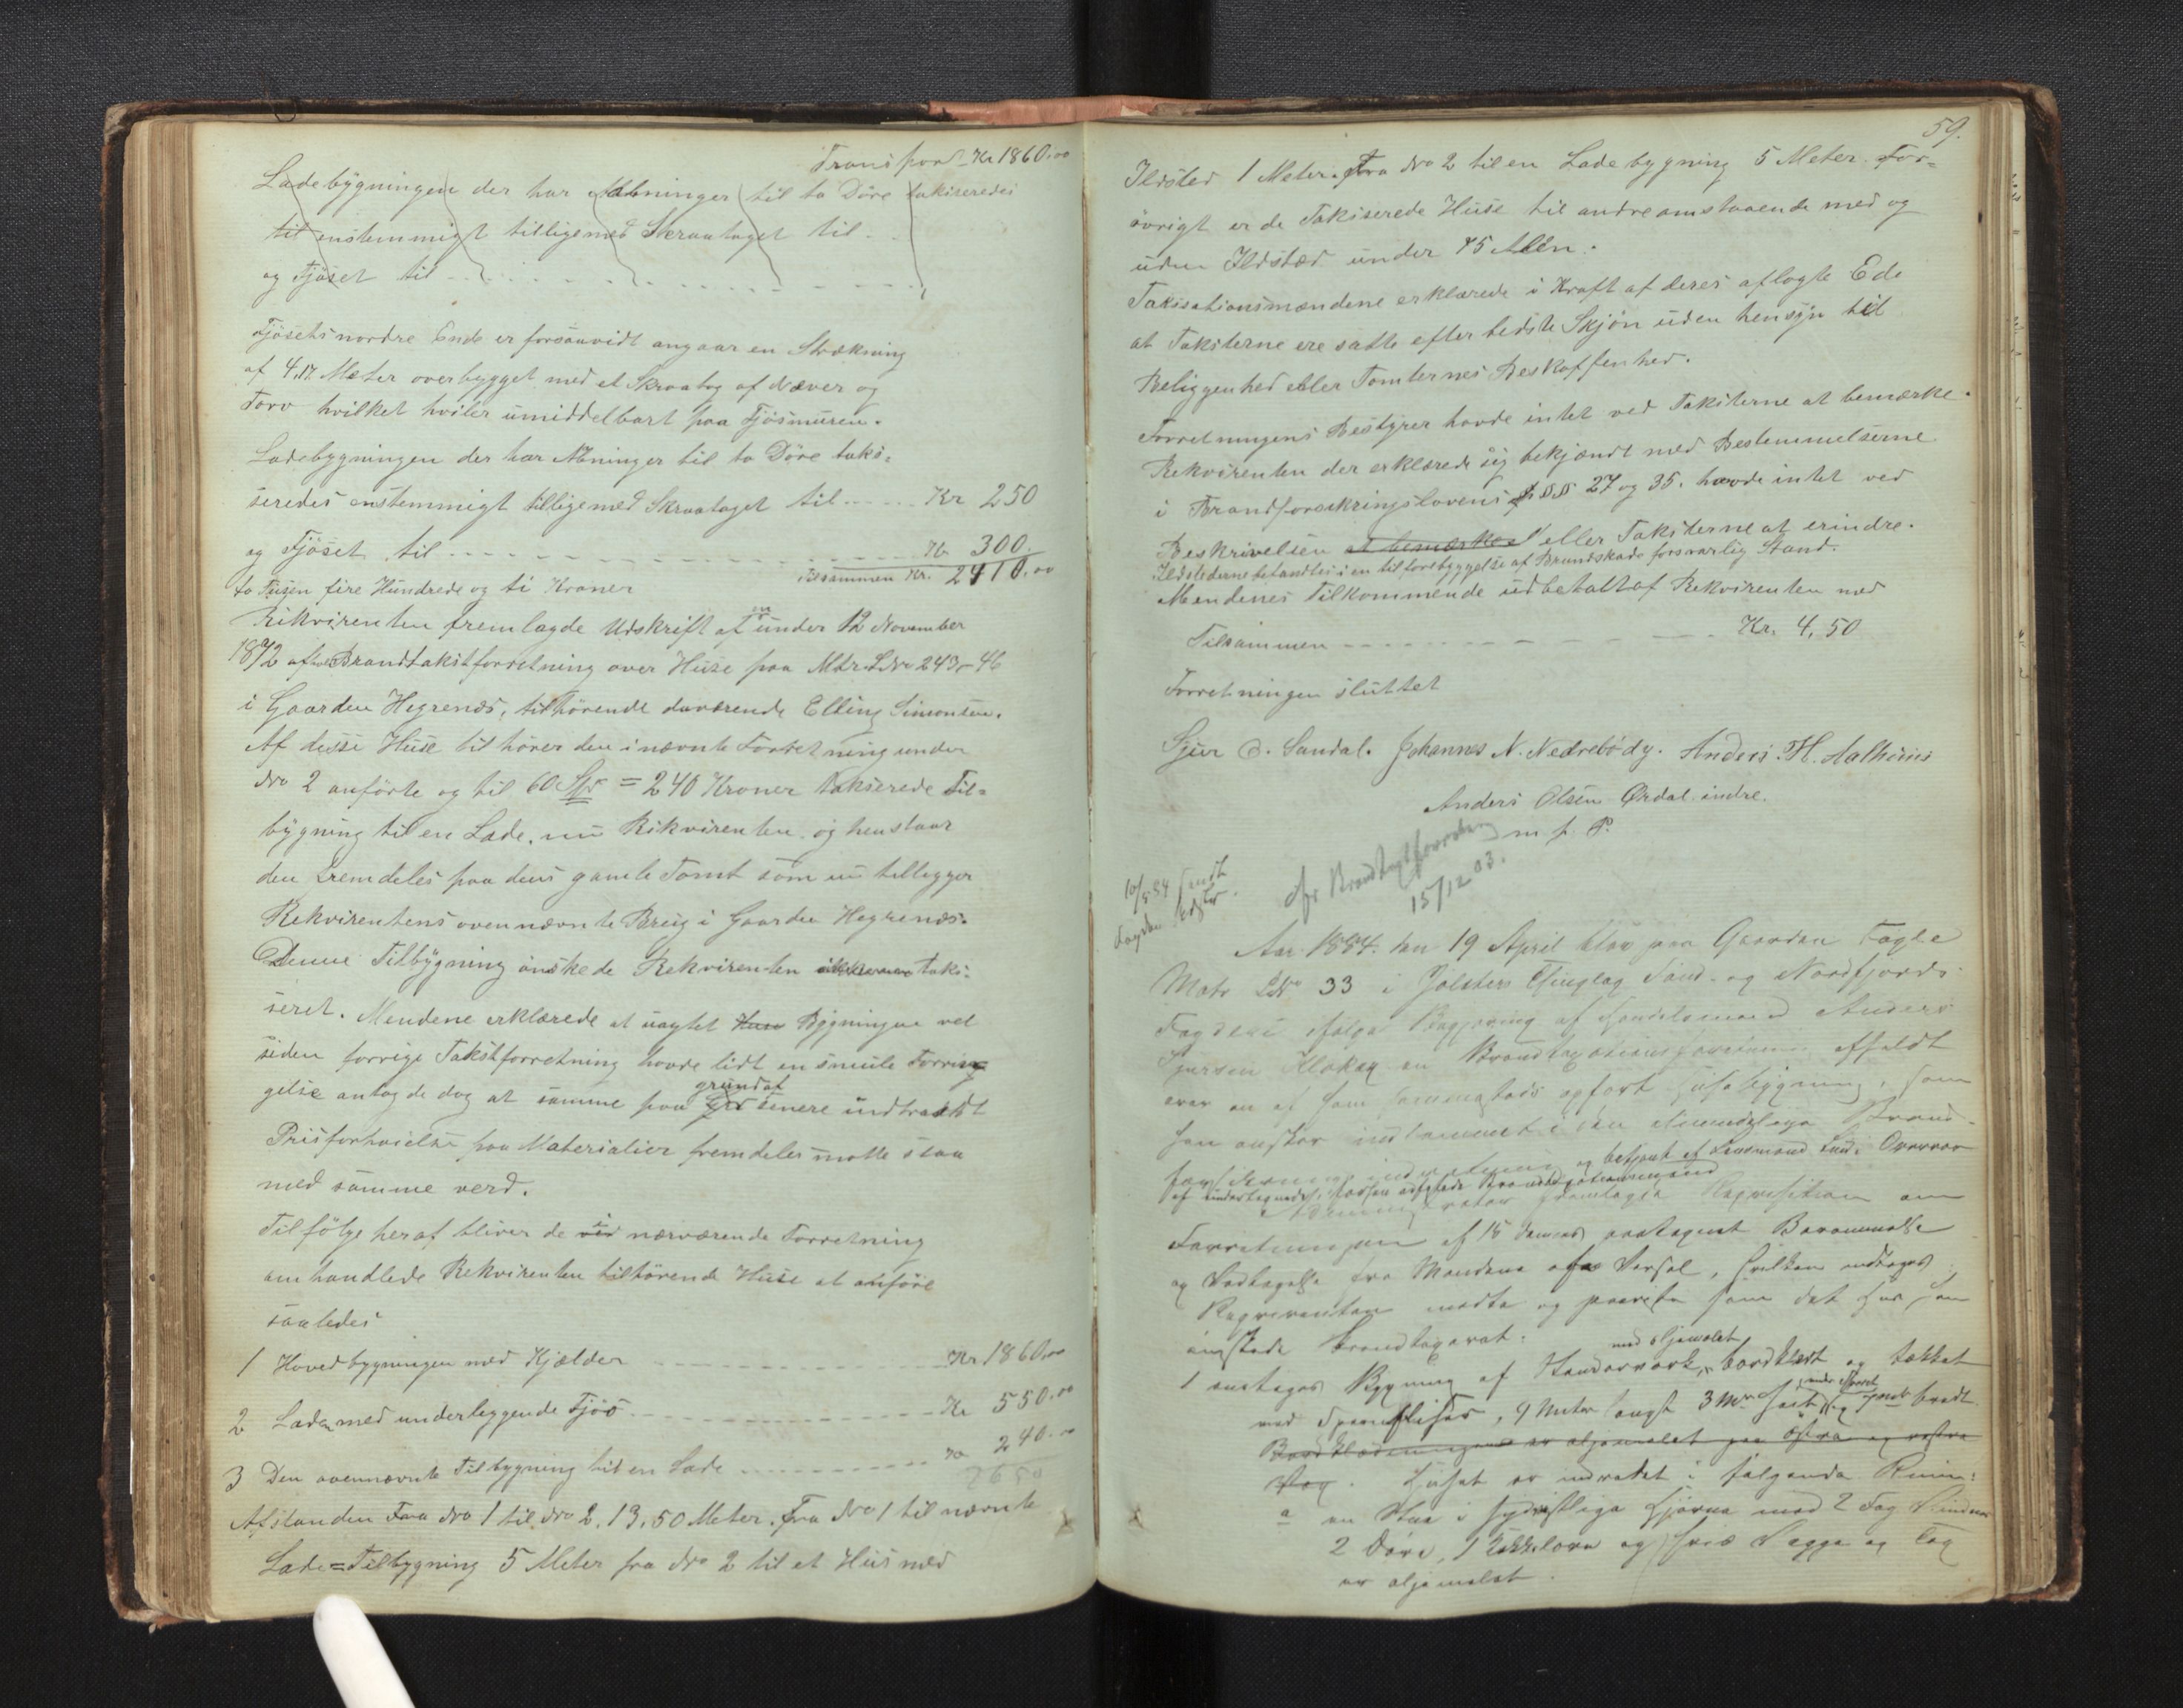 Transport Kr 1860.00
Ladebygningen der har Aabninger til to Döre takseredes
til enstemmigt tilligemed Skraataget til
og Fjöset til
Fjösets nordre Ende er forsaavidt angaar en Strækning
af 4,17. Meter overbygget med et Skraatag af Næver og
Torv hvilket hviler umiddelbart paa Fjösmuren.
Ladebygningen der har Aabninger til to Döre taks-
seredes enstemmigt tilligemed Skraataget til Kr 250
og Fjöset til Kr 300.
to Tusen fire Hundrede og ti Kroner Tilsammen Kr. 2410.00
Rikvirenten fremlagde Udskrift af en under 12 November
1872 afholdt Brandtakstforretning over Huse paa Matr. L No 243-46
i Gaarden Hegrenæs, tilhörende daværende Elling Simonsen.
Af disse Huse tilhører den i nævnte Forretning under
No 2 anförte og til 60 Spd = 240 Kroner takserede Til-
bygning til en Lade, nu Rikvirenten og henstaar
den fremdeles paa dens gamle Tomt som nu tillegger
Rekvirentens ovennævnte Brug i Gaarden Hegrenæs.
Denne Tilbygning önskede Rekvirenten taks-
seret. Mendene erklærede at uagtet Huse Bygningen vel
siden forrige Takstforretning havde lidt en smule Forrin-
gelse antogde dog at samme paa grund af senere indtraadt
Prisforhöielse paa Materialier fremdeles maatte staa
med samme verd.
Tilfölge heraf bliver de ved i nærværende Forretning
omhandlede Rekvirenten tilhörende Huse at anföre
saaledes
1 Hovedbygningen med Kjælder Kr 1860.00
2 Laden med underliggende Fjös Kr 550.00
3 Den ovennævnte Tilbygning til en Lade Kr 240.00
2650
Afstanden Fra No 1 til No 2, 13,50 Meter. Fra No 1 til nævnte
Lade=Tilbygning 5 Meter fra No 2 til et Hus med
59.
Ildsted 1 Meter. Fra No 2 til en Ladebygning 5 Meter. For-
övrigt er de Takserede Huse til andre omstaaende med og
uden Ildsted under 45 Alen.
Taksationsmændene erklærede i Kraft af deres aflagte Ed
at Taksterne ere satte efter bedste Skjön uden hensyn til
Beliggenhed eller Tomternes Beskaffenhed.
Forretningens Bestyrer havde intet ved Taksterne at bemærke.
Rekvirenten der erklærede sig bekjendt med Bestemmelserne
i Brandforsikringslovens §§ 27 og 35. havde intet ved
Beskrivelsen at bemærke eller Taksterne at erindre.
Ildstederne befandtes i en til forebyggelse af Brandskade forsvarlig Stand.
Mændenes Tilkommende udbetalt af Rekvirenten med
Tilsammen Kr. 4,50
Forretningen sluttet
Sjur O. Sandal. Johannes N. Nedrebö dy. Anders H. Aalhuus
Anders Olsen Ørdal indre.
m f. P.
Brandtaxtforretning
15/12 03.
10/5 84 sendt
Aar 1884. den 19 April blev paa Gaarden Fagle
Matr LNo 33 i Jölsters Thinglag Sönd- og Nordfjords
Fogderi ifölge Begjæring af Handelsmand Anders
Sjursen Klakeg en Brandtaxationsforretning afholdt
over en af ham sammesteds opfört Husebygning, som
han önsker indlemmet i den Almindelige Brand-
forsikringsindretning og betjent af Lensmand
af undertegnede
fremlagde Reqvisition om
Forretningen af 15 dennes paategnet Berammelse
og Vedtagelse fra Mændene om Varsel, hvilken
Reqvirenten mødte og paaviste som det Hus han
ønskede brandtaxeret:
1 enetages Bygning af Tømmerverk, med oljemalet bordklædt og tækket
med Spaanfliser, 9 Meter langt 3 Mtr høit og bredt
Bordklædningen er oljemalet paa östre og vestre
Væg. Huset er indredet i følgende Rum:
a en Stue i sydvestlige Hjørne med 2 Fag Vinduer
2 Döre, 1 Kakkelovn og hvis Vægge og Tag
er oljemalet.